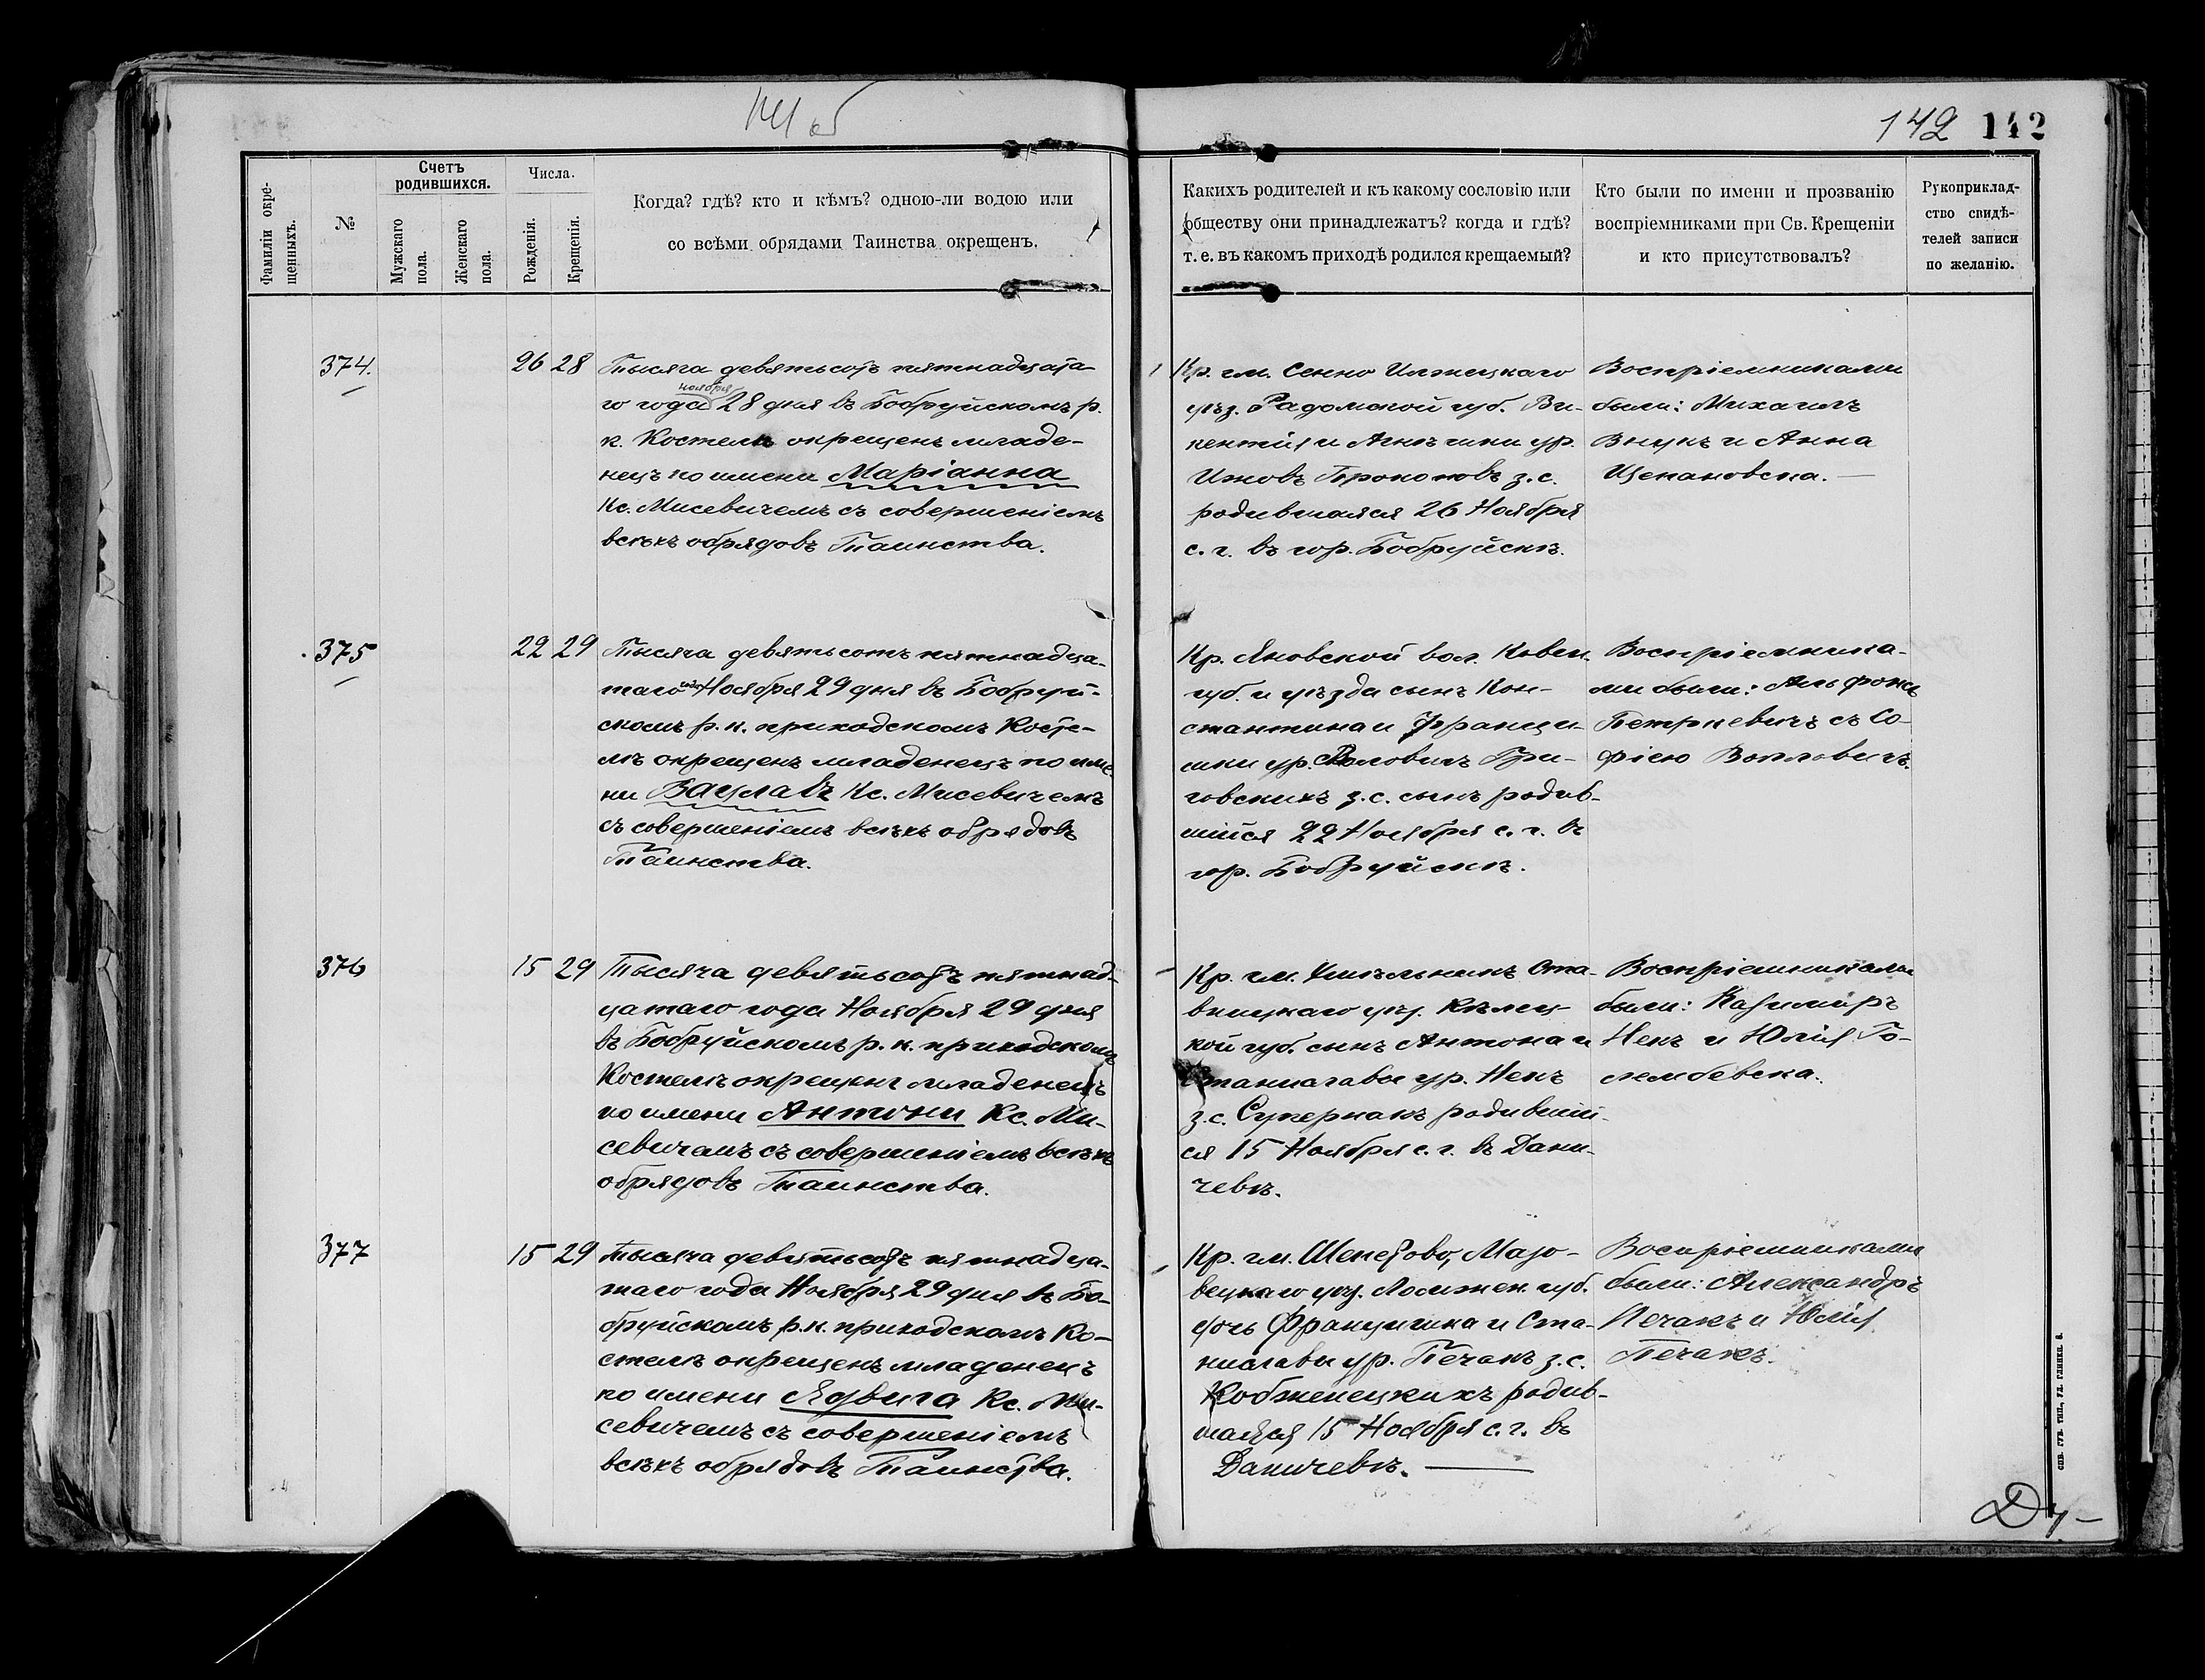 141 об
142 142
Фамиліи окре-
щенныхъ.
№
Счетъ
родившихся.
Мужскаго
пола.
Женскаго
пола.
Числа.
Рожденія.
Крещенія.
Когда? гдѣ? кто и кѣмъ? одною-ли водою или
со всѣми обрядами Таинства окрещенъ.
Какихъ родителей и къ какому сословію или
обществу они принадлежатъ? когда и гдѣ?
т. е. въ какомъ приходѣ родился крещаемый?
Кто были по имени и прозванію
воспріемниками при Св. Крещеніи
и кто присутствовалъ?
Рукоприклад-
ство свидѣ-
телей записи
по желанію.
374.
26 28
Тысяча девятьсотъ пятнадцата-
го года ноября 28 дня въ Бобруйскомъ р.
к. Костелѣ окрещенъ младе-
нецъ по имени Маріанна
Кс. Мисевичемъ съ совершеніемъ
всѣхъ обрядовъ Таинства.
Кр. гм. Сенно Илжецкаго
уѣз. Радомской губ. Ви-
кентія и Агнѣшки ур.
з. с.
родившаяся 26 Ноября
с. г. въ гор. Бобруйскѣ.
Воспріемниками
были: Михаилъ
Внукъ и Анна
Щепановска.
375
22 29
Тысяча девятьсотъ пятнадца-
таго года Ноября 29 дня въ Бобруй-
скомъ р. к. приходскомъ Косте-
лѣ окрещенъ младенецъ по име-
ни Вацлавъ Кс. Мисевичемъ
съ совершеніемъ всѣхъ обрядовъ
Таинства.
Кр. Яновской вол. Ковен.
губ. и уѣзда сынъ Кон-
стантина и Франци-
шки ур. Гри-
говскихъ з. с. сынъ родив-
шійся 22 Ноября с. г. въ
гор. Бобруйскѣ.
Воспріемника-
ми были: Альфонсъ
Петркевичъ съ Со-
фіею
376
15 29
Тысяча девятьсотъ пятнад-
цатаго года Ноября 29 дня
въ Бобруйскомъ р. к. приходскомъ
Костелѣ окрещенъ младенецъ
по имени Антони Кс. Ми-
севичемъ съ совершеніемъ всѣхъ
обрядовъ Таинства.
Кр. гм. Хмѣльникъ Ста-
вницкаго уѣз. Кѣлец-
кой губ. сынъ Антона и
Станиславы ур. Ненъ
з. с. родившій-
ся 15 Ноября с. г. въ Дани-
чевѣ.
Воспріемниками
были: Казимиръ
Ненъ и Юлія Го-
лембевска.
377
15 29
Тысяча девятьсотъ пятнадца-
таго года Ноября 29 дня въ Бо-
бруйскомъ р. к. приходскомъ Ко-
стелѣ окрещенъ младенецъ
по имени Ядвига Кс. Ми-
севичемъ съ совершеніемъ
всѣхъ обрядовъ Таинства.
Кр. гм. Шепетово, Мазо-
вецкаго уѣз. Ломжен. губ.
дочь Францишка и Ста-
ниславы ур. Печакъ з. с.
Кобженецкихъ родив-
шаяся 15 Ноября с. г. въ
Даничевѣ.
Воспріемниками
были: Александръ
Печакъ и Юлія
Печакъ.